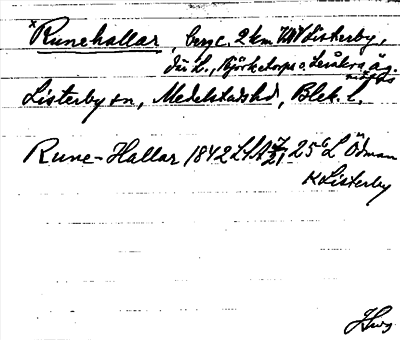 *Runehallar, berg c. 2 km NNV Listerby,
där L., Björketorps o. Leråkra äg.
mötas
Listerby sn, Medelstads hd, Blek. l.
Rune-Hallar 1842 LSA 25 L Ödman
K Listerby